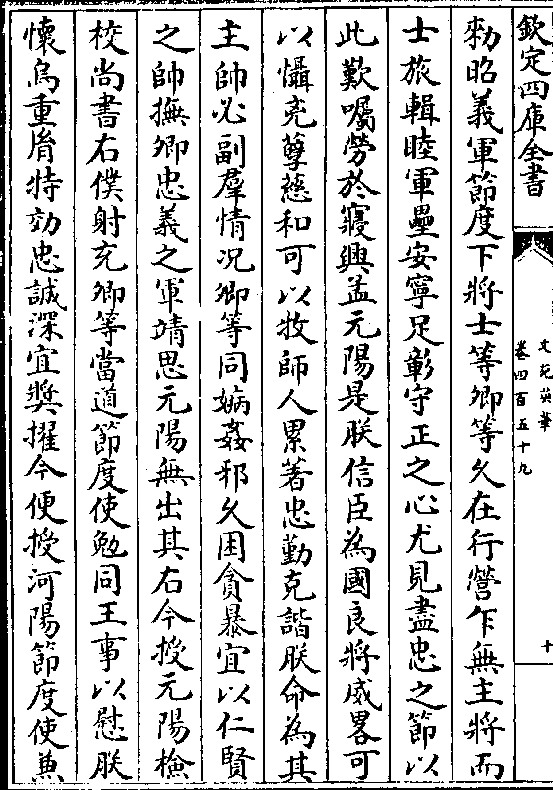 欽定四庫全書
文苑英華
卷四百五十九
十
勑昭義軍節度下將士等卿等久在行營乍無主將而
士旅輯睦軍壘安寧足彰守正之心尤見盡忠之節以
此歎囑勞於寢興孟元陽是朕信臣為國良將威畧可
以懾兇孽慈和可以牧師人累著忠勤克諧朕命為其
主帥必副羣情况卿等同嫉姦邪久困貪暴宜以仁賢
之帥撫卿忠義之軍靖思元陽無出其右今授元陽檢
校尚書右僕射充卿等當道節度使勉同王事以慰朕
懷烏重胤特効忠誠深宜奬擢今便授河陽節度使兼